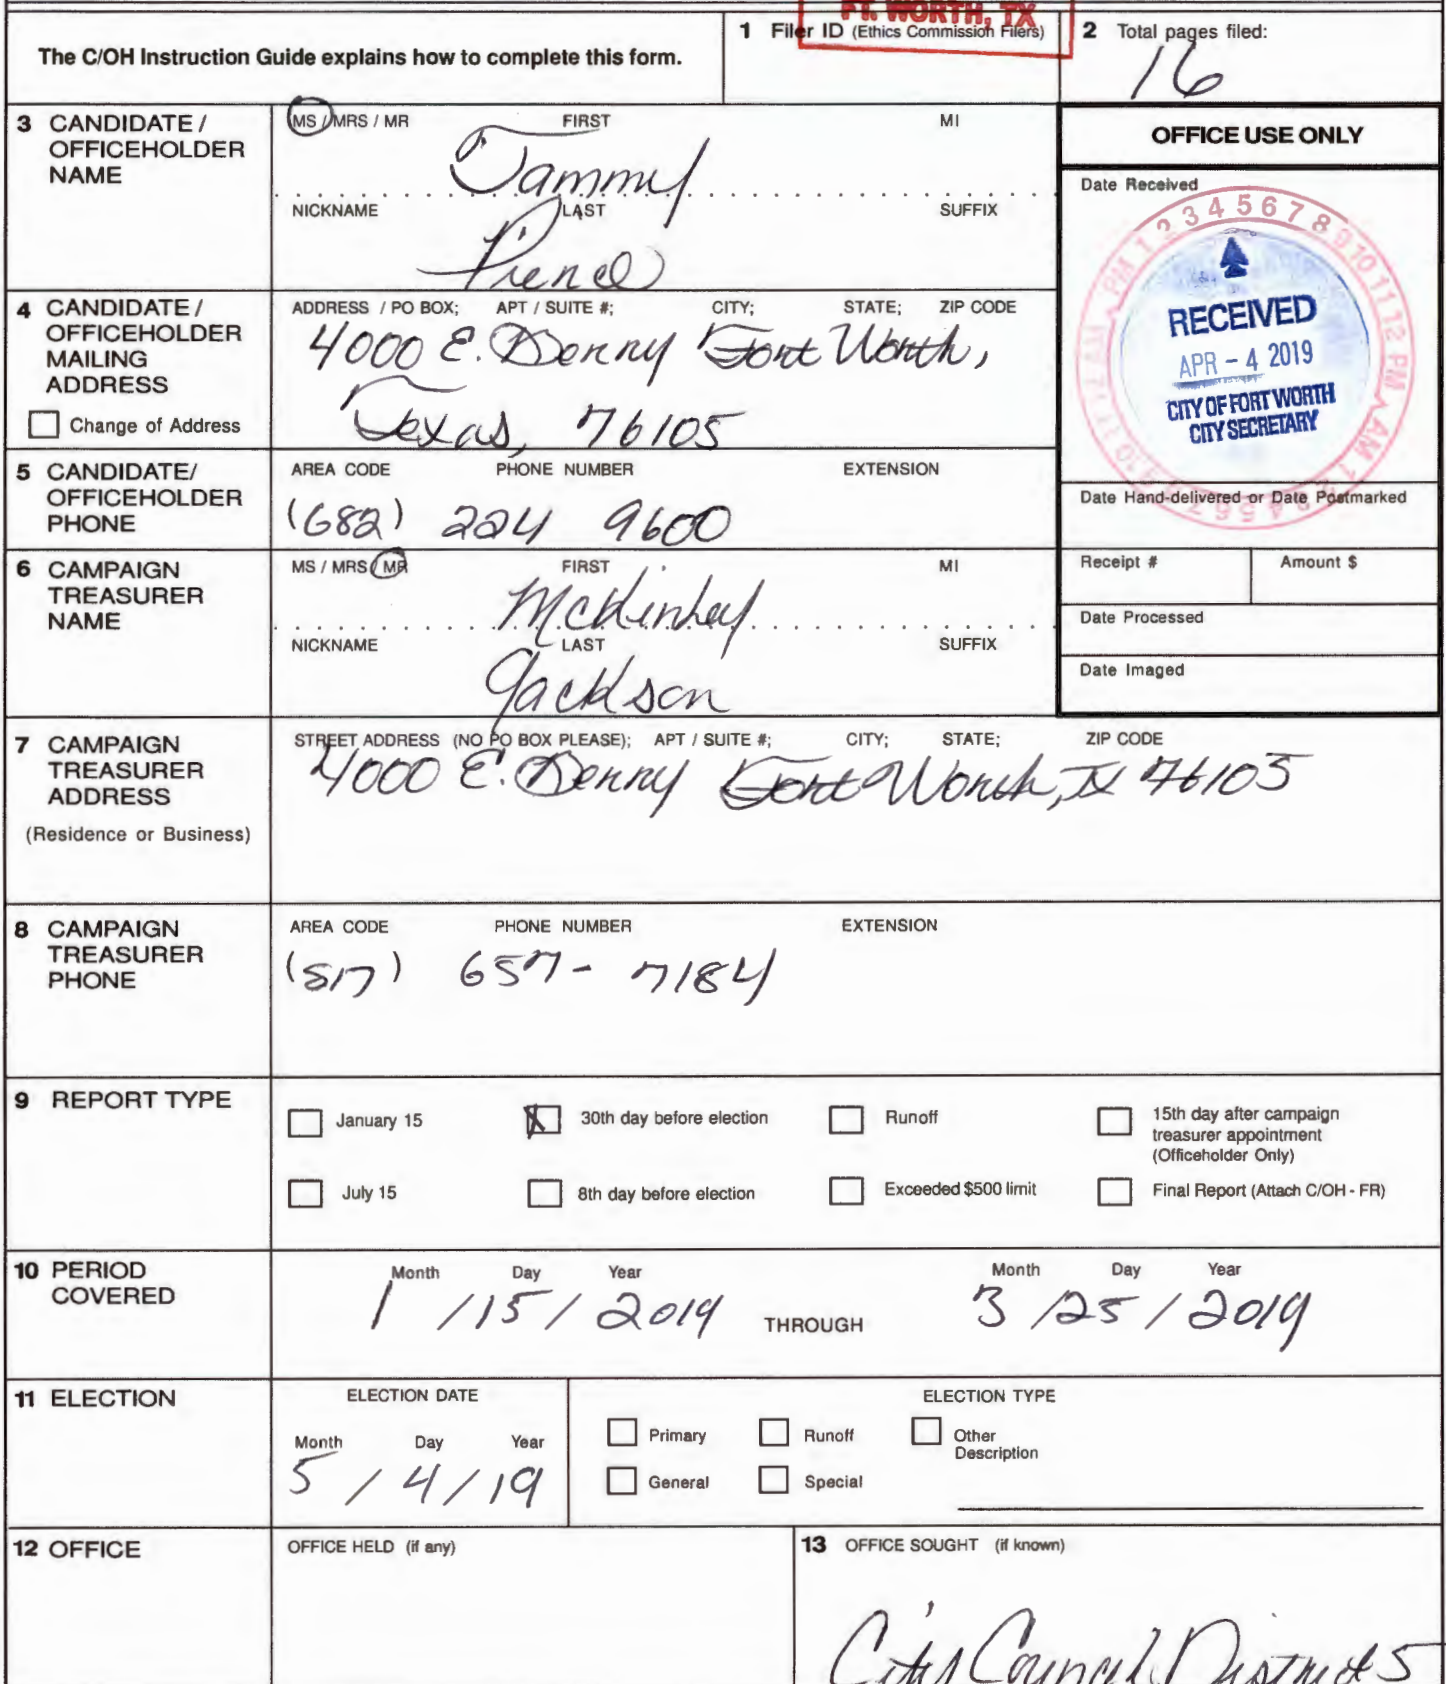 FT. WORTH, TX
The C/OH Instruction Guide explains how to complete this form.
1 Filer ID (Ethics Commission Filers)
2 Total pages filed:
16
3 CANDIDATE / OFFICEHOLDER NAME
MS / MRS / MR FIRST MI
Tammy
NICKNAME LAST SUFFIX
Pierce
OFFICE USE ONLY
Date Received
RECEIVED
APR - 4 2019
CITY OF FORT WORTH
CITY SECRETARY
4 CANDIDATE / OFFICEHOLDER MAILING ADDRESS
Change of Address
ADDRESS / PO BOX; APT / SUITE #; CITY; STATE; ZIP CODE
4000 E. Berry Fort Worth,
Texas, 76105
5 CANDIDATE/ OFFICEHOLDER PHONE
AREA CODE PHONE NUMBER EXTENSION
(682) 224 9600
Date Hand-delivered or Date Postmarked
6 CAMPAIGN TREASURER NAME
MS / MRS / MR FIRST MI
McKinley
NICKNAME LAST SUFFIX
Jackson
Receipt # Amount $
Date Processed
Date Imaged
7 CAMPAIGN TREASURER ADDRESS
(Residence or Business)
STREET ADDRESS (NO PO BOX PLEASE); APT / SUITE #; CITY; STATE; ZIP CODE
4000 E. Berry Fort Worth, TX 76105
8 CAMPAIGN TREASURER PHONE
AREA CODE PHONE NUMBER EXTENSION
(817) 657-7184
9 REPORT TYPE
January 15
30th day before election
Runoff
15th day after campaign treasurer appointment (Officeholder Only)
July 15
8th day before election
Exceeded $500 limit
Final Report (Attach C/OH - FR)
10 PERIOD COVERED
Month Day Year
1 / 15 / 2019
THROUGH
Month Day Year
3 / 25 / 2019
11 ELECTION
ELECTION DATE
Month Day Year
5 / 4 / 19
ELECTION TYPE
Primary
Runoff
Other Description
General
Special
12 OFFICE
OFFICE HELD (if any)
13 OFFICE SOUGHT (if known)
City Council District 5